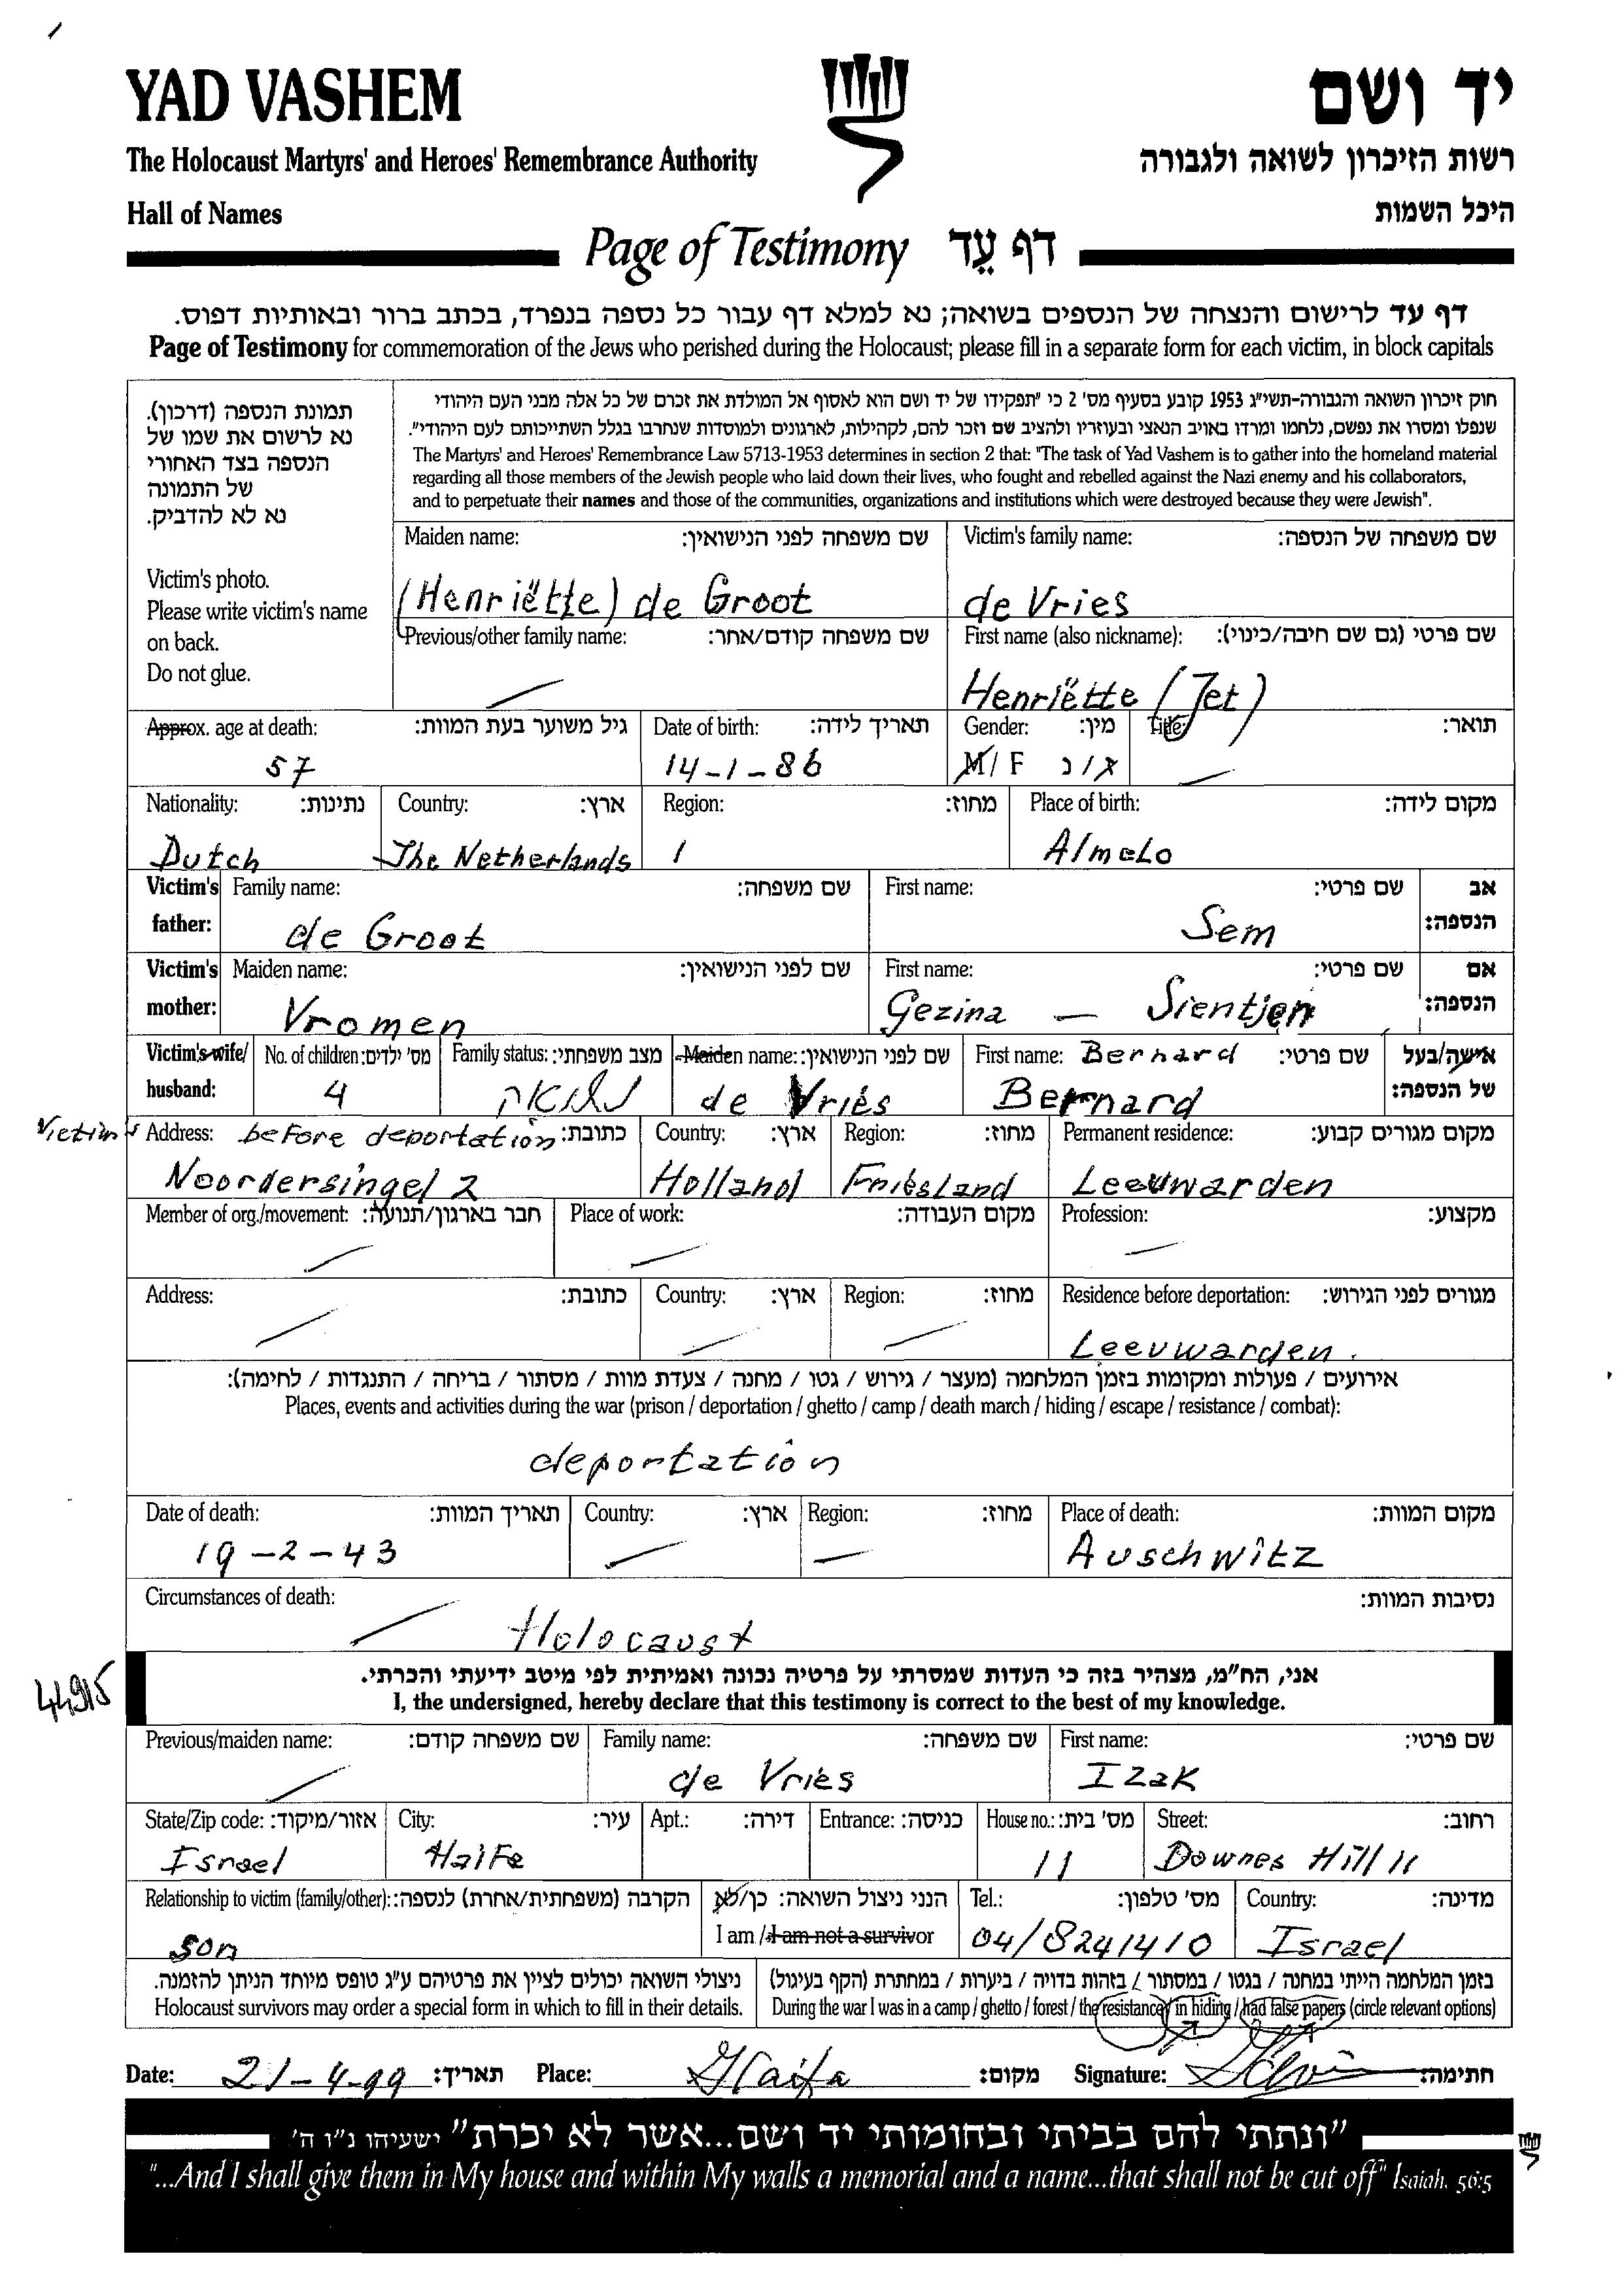 YAD VASHEM
יד ושם
The Holocaust Martyrs' and Heroes' Remembrance Authority
רשות הזיכרון לשואה ולגבורה
Hall of Names
היכל השמות
Page of Testimony דף עֵד
דף עד לרישום והנצחה של הנספים בשואה; נא למלא דף עבור כל נספה בנפרד, בכתב ברור ובאותיות דפוס.
Page of Testimony for commemoration of the Jews who perished during the Holocaust; please fill in a separate form for each victim, in block capitals
תמונת הנספה (דרכון).
נא לרשום את שמו של
הנספה בצד האחורי
של התמונה
נא לא להדביק.
Victim's photo.
Please write victim's name
on back.
Do not glue.
חוק זיכרון השואה והגבורה-תשי"ג 1953 קובע בסעיף מס' 2 כי "תפקידו של יד ושם הוא לאסוף אל המולדת את זכרם של כל אלה מבני העם היהודי
שנפלו ומסרו את נפשם, נלחמו ומרדו באויב הנאצי ובעוזריו ולהציב שם וזכר להם, לקהילות, לארגונים ולמוסדות שנחרבו בגלל השתייכותם לעם היהודי".
The Martyrs' and Heroes' Remembrance Law 5713-1953 determines in section 2 that: "The task of Yad Vashem is to gather into the homeland material
regarding all those members of the Jewish people who laid down their lives, who fought and rebelled against the Nazi enemy and his collaborators,
and to perpetuate their names and those of the communities, organizations and institutions which were destroyed because they were Jewish".
Maiden name: שם משפחה לפני הנישואין: Victim's family name: שם משפחה של הנספה:
(Henriëtte) de Groot de Vries
Previous/other family name: שם משפחה קודם/אחר: First name (also nickname): שם פרטי (גם שם חיבה/כינוי):
Henriëtte (Jet)
Approx. age at death: גיל משוער בעת המוות: Date of birth: תאריך לידה: Gender: מין: Title: תואר:
57 14-1-86 M/F ז/נ
Nationality: נתינות: Country: ארץ: Region: מחוז: Place of birth: מקום לידה:
Dutch The Netherlands / Almelo
Victim's father: Family name: שם משפחה: First name: שם פרטי: אב הנספה:
de Groot Sem
Victim's mother: Maiden name: שם לפני הנישואין: First name: שם פרטי: אם הנספה:
Vromen Gezina — Sientjen
Victim's wife/ husband: No. of children: מס' ילדים: Family status: מצב משפחתי: Maiden name: שם לפני הנישואין: First name: Bernard שם פרטי: אישה/בעל של הנספה:
4 נשואה de Vries Bernard
Victim's Address: before deportation כתובת: Country: ארץ: Region: מחוז: Permanent residence: מקום מגורים קבוע:
Noordersingel 2 Holland Friesland Leeuwarden
Member of org./movement: חבר בארגון/תנועה: Place of work: מקום העבודה: Profession: מקצוע:
Address: כתובת: Country: ארץ: Region: מחוז: Residence before deportation: מגורים לפני הגירוש:
Leeuwarden.
אירועים / פעולות ומקומות בזמן המלחמה (מעצר / גירוש / גטו / מחנה / צעדת מוות / מסתור / בריחה / התנגדות / לחימה):
Places, events and activities during the war (prison / deportation / ghetto / camp / death march / hiding / escape / resistance / combat):
deportation
Date of death: תאריך המוות: Country: ארץ: Region: מחוז: Place of death: מקום המוות:
19-2-43 Auschwitz
Circumstances of death: נסיבות המוות:
Holocaust
44915
אני, הח"מ, מצהיר בזה כי העדות שמסרתי על פרטיה נכונה ואמיתית לפי מיטב ידיעתי והכרתי.
I, the undersigned, hereby declare that this testimony is correct to the best of my knowledge.
Previous/maiden name: שם משפחה קודם: Family name: שם משפחה: First name: שם פרטי:
de Vries Izak
State/Zip code: אזור/מיקוד: City: עיר: Apt.: דירה: Entrance: כניסה: House no.: מס' בית: Street: רחוב:
Israel Haifa 11 Downes Hill 11
Relationship to victim (family/other): הקרבה (משפחתית/אחרת) לנספה: הנני ניצול השואה: כן/לא Tel.: מס' טלפון: Country: מדינה:
son I am / I am not a survivor 04/8241410 Israel
ניצולי השואה יכולים לציין את פרטיהם ע"ג טופס מיוחד הניתן להזמנה. בזמן המלחמה הייתי במחנה / בגטו / במסתור / בזהות בדויה / ביערות / במחתרת (הקף בעיגול)
Holocaust survivors may order a special form in which to fill in their details. During the war I was in a camp / ghetto / forest / the resistance / in hiding / had false papers (circle relevant options)
Date: 21-4-99 תאריך: Place: Haifa מקום: Signature: חתימה:
"ונתתי להם בביתי ובחומותי יד ושם...אשר לא יכרת" ישעיהו נ"ו ה'
"...And I shall give them in My house and within My walls a memorial and a name...that shall not be cut off" Isaiah. 56:5